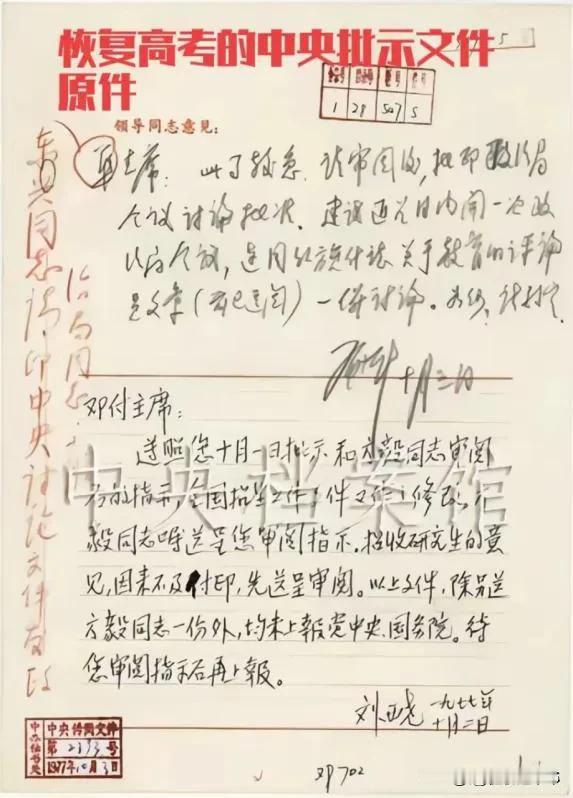 恢复高考的中央批示文件
原件
领导同志意见：
1 28 507 5
华主席：此事较急，请审阅后，批印政治局
会议讨论批决。建议近几日内开一次政
治局会议，连同红旗杂志关于教育的评论
文章（前已送阅）一併讨论。
十月三日
东兴同志请印中央讨论文件
治局同志
邓付主席：
遵照您十月一日批示和方毅同志审阅
后的指示，全国招生工作文件又作了修改，方
毅同志嘱送呈您审阅指示。招收研究生的意
见，因来不及付印，先送呈审阅。以上文件，除另送
方毅同志一份外，均未上报党中央、国务院。待
您审阅指示后再上报。
刘西尧 一九七七年
十月二日
中央档案馆
中办秘书处
中央传阅文件
第2393号
1977年10月3日
邓702